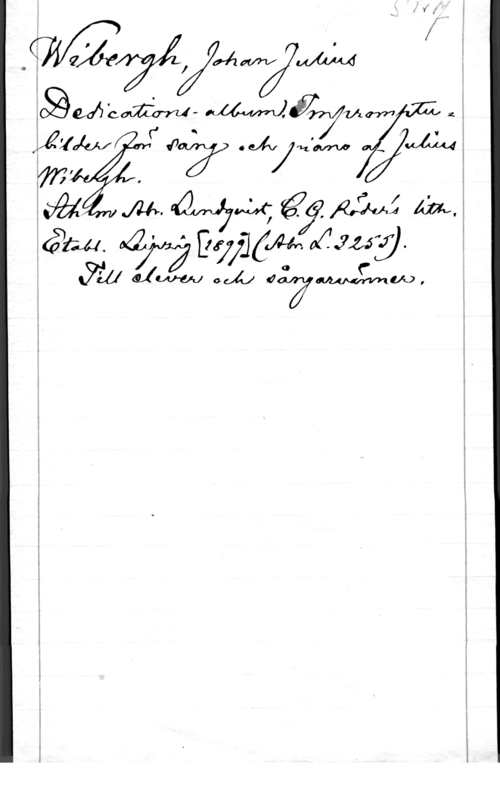 Wibergh, Johan Julius
Dedications-album. Impromptu-
bilder för sång och piano af Julius
Wibergh.
Sthlm Abr. Lundquist, C. G. Röder's lith.
Etabl. Leipzig [1899] (Abr. L. 3255).
Till elever och sångarvänner.